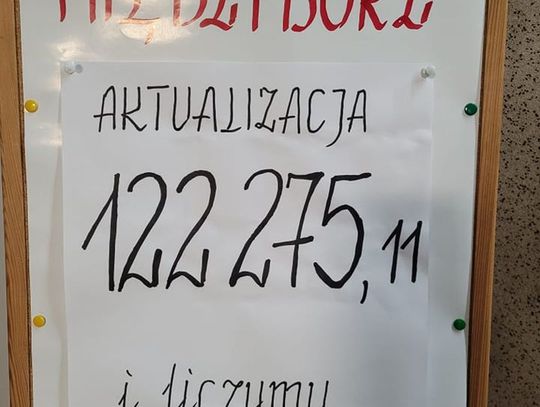 MIĘDZYBÓRZ
AKTUALIZACJA
122 275,11
i liczymy